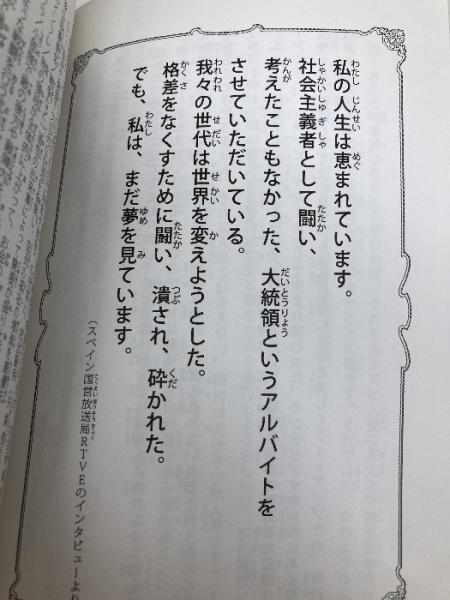 私の人生は恵まれています。
社会主義者として闘い、
考えたこともなかった、大統領というアルバイトを
させていただいている。
我々の世代は世界を変えようとした。
格差をなくすために闘い、潰され、砕かれた。
でも、私は、まだ夢を見ています。
（スペイン国営放送局RTVEのインタビューより